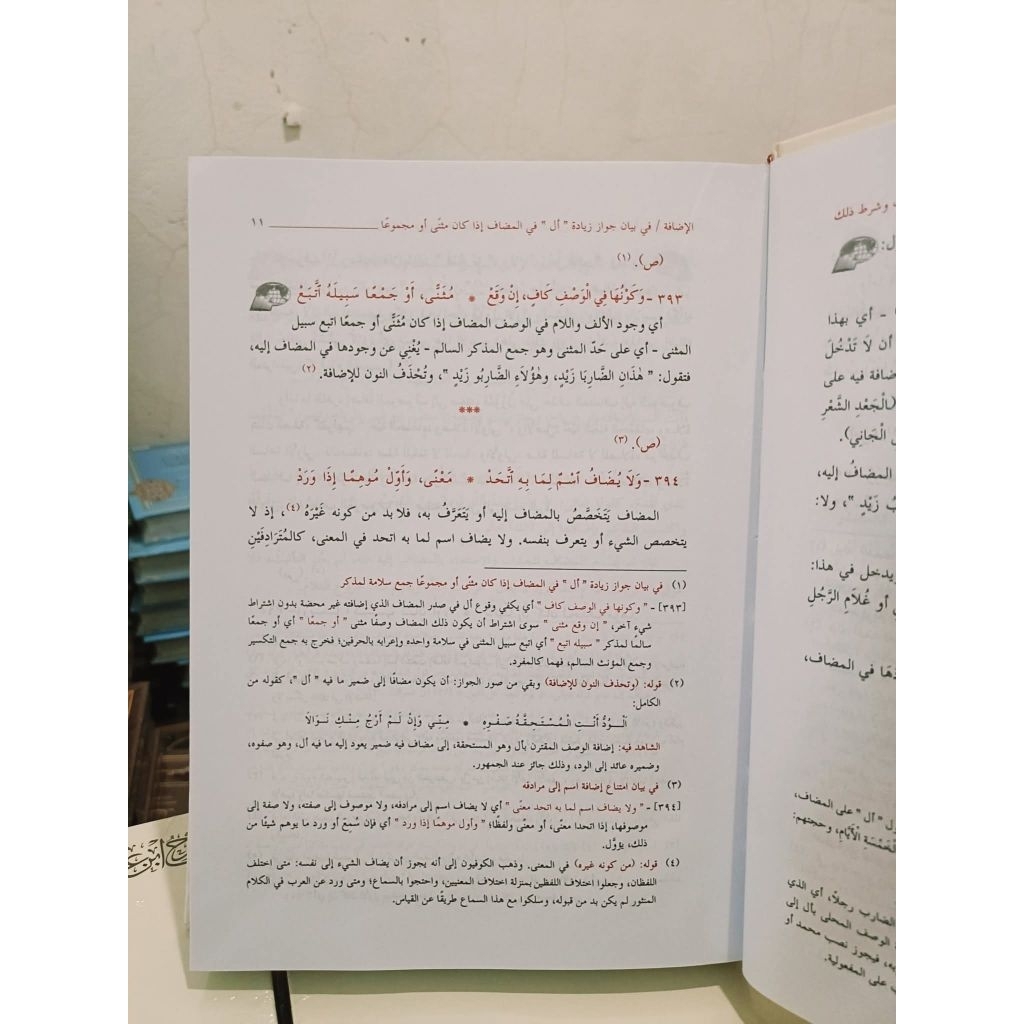 الإضافة / في بيان جواز زيادة " أل " في المضاف إذا كان مثنّى أو مجموعًا ١١
(ص). (١)
٣٩٣ - وَكَوْنُهَا فِي الْوَصْفِ كَافٍ، إِنْ وَقَعْ * مُثَنًّى، أَوْ جَمْعًا سَبِيلَهُ اتَّبَعْ
أي وجود الألف واللام في الوصف المضاف إذا كان مُثَنًّى أو جمعًا اتبع سبيل
المثنى - أي على حَدّ المثنى وهو جمع المذكر السالم - يُغْنِي عن وجودها في المضاف إليه،
فتقول: " هَذَانِ الضَّارِبَا زَيْدٍ، وهَؤُلَاءِ الضَّارِبُو زَيْدٍ "، وتُحْذَفُ النون للإضافة. (٢)
***
(ص). (٣)
٣٩٤ - وَلَا يُضَافُ ٱسْمٌ لِمَا بِهِ ٱتَّحَدْ * مَعْنًى، وَأَوِّلْ مُوهِمًا إِذَا وَرَدْ
المضاف يَتَخَصَّصُ بالمضاف إليه أو يَتَعَرَّفُ به، فلا بد من كونه غَيْرَهُ (٤)، إذ لا
يتخصص الشيء أو يتعرف بنفسه. ولا يضاف اسم لما به اتحد في المعنى، كالمُتَرَادِفَيْنِ
(١) في بيان جواز زيادة " أل " في المضاف إذا كان مثنّى أو مجموعًا جمع سلامة لمذكر
[٣٩٣] - " وكونها في الوصف كاف " أي يكفي وقوع أل في صدر المضاف الذي إضافته غير محضة بدون اشتراط
شيء آخر، " إن وقع مثنى " سوى اشتراط أن يكون ذلك المضاف وصفًا مثنى " أو جمعًا " أي أو جمعًا
سالمًا لمذكر " سبيله اتبع " أي اتبع سبيل المثنى في سلامة واحده وإعرابه بالحرفين؛ فخرج به جمع التكسير
وجمع المؤنث السالم، فهما كالمفرد.
(٢) قوله: (وتحذف النون للإضافة) وبقي من صور الجواز: أن يكون مضافًا إلى ضمير ما فيه " أل "، كقوله من
الكامل:
اَلْـوُدُّ أَنْـتِ الْـمُسْـتَحِقَّـةُ صَـفْـوِهِ * مِـنِّـي وَإِنْ لَـمْ أَرْجُ مِـنْـكِ نَـوَالَا
الشاهد فيه: إضافة الوصف المقترن بأل وهو المستحقة، إلى مضاف فيه ضمير يعود إليه ما فيه أل، وهو صفوه،
وضميره عائد إلى الود، وذلك جائز عند الجمهور.
(٣) في بيان امتناع إضافة اسم إلى مرادفه
[٣٩٤] - " ولا يضاف اسم لما به اتحد معنًى " أي لا يضاف اسم إلى مرادفه، ولا موصوف إلى صفته، ولا صفة إلى
موصوفها، إذا اتحدا معنًى، أو معنًى ولفظًا؛ " وأول موهمًا إذا ورد " أي فإن سُمِعَ أو ورد ما يوهم شيئًا من
ذلك، يؤوَّل.
(٤) قوله: (من كونه غيره) في المعنى. وذهب الكوفيون إلى أنه يجوز أن يضاف الشيء إلى نفسه: متى اختلف
اللفظان، وجعلوا اختلاف اللفظين بمنزلة اختلاف المعنيين، واحتجوا بالسماع؛ ومتى ورد عن العرب في الكلام
المنثور لم يكن بد من قبوله، وسلكوا مع هذا السماع طريقًا عن القياس.
، وشرط ذلك
- أي بهذا
أن لَا تَدْخُلَ
ضافة فيه على
(الْجَعْدِ الشَّعْرِ
الْجَانِي).
المضافُ إليه،
زَيْدٍ "، ولا:
يدخل في هذا:
أو غُلَامِ الرَّجُلِ
في المضاف،
" أل " على المضاف،
الْأَيَّامِ، وحجتهم:
الضارب رجلاً، أي الذي
الوصف المحلى بأل إلى
فيجوز نصب محمد أو
على المفعولية.